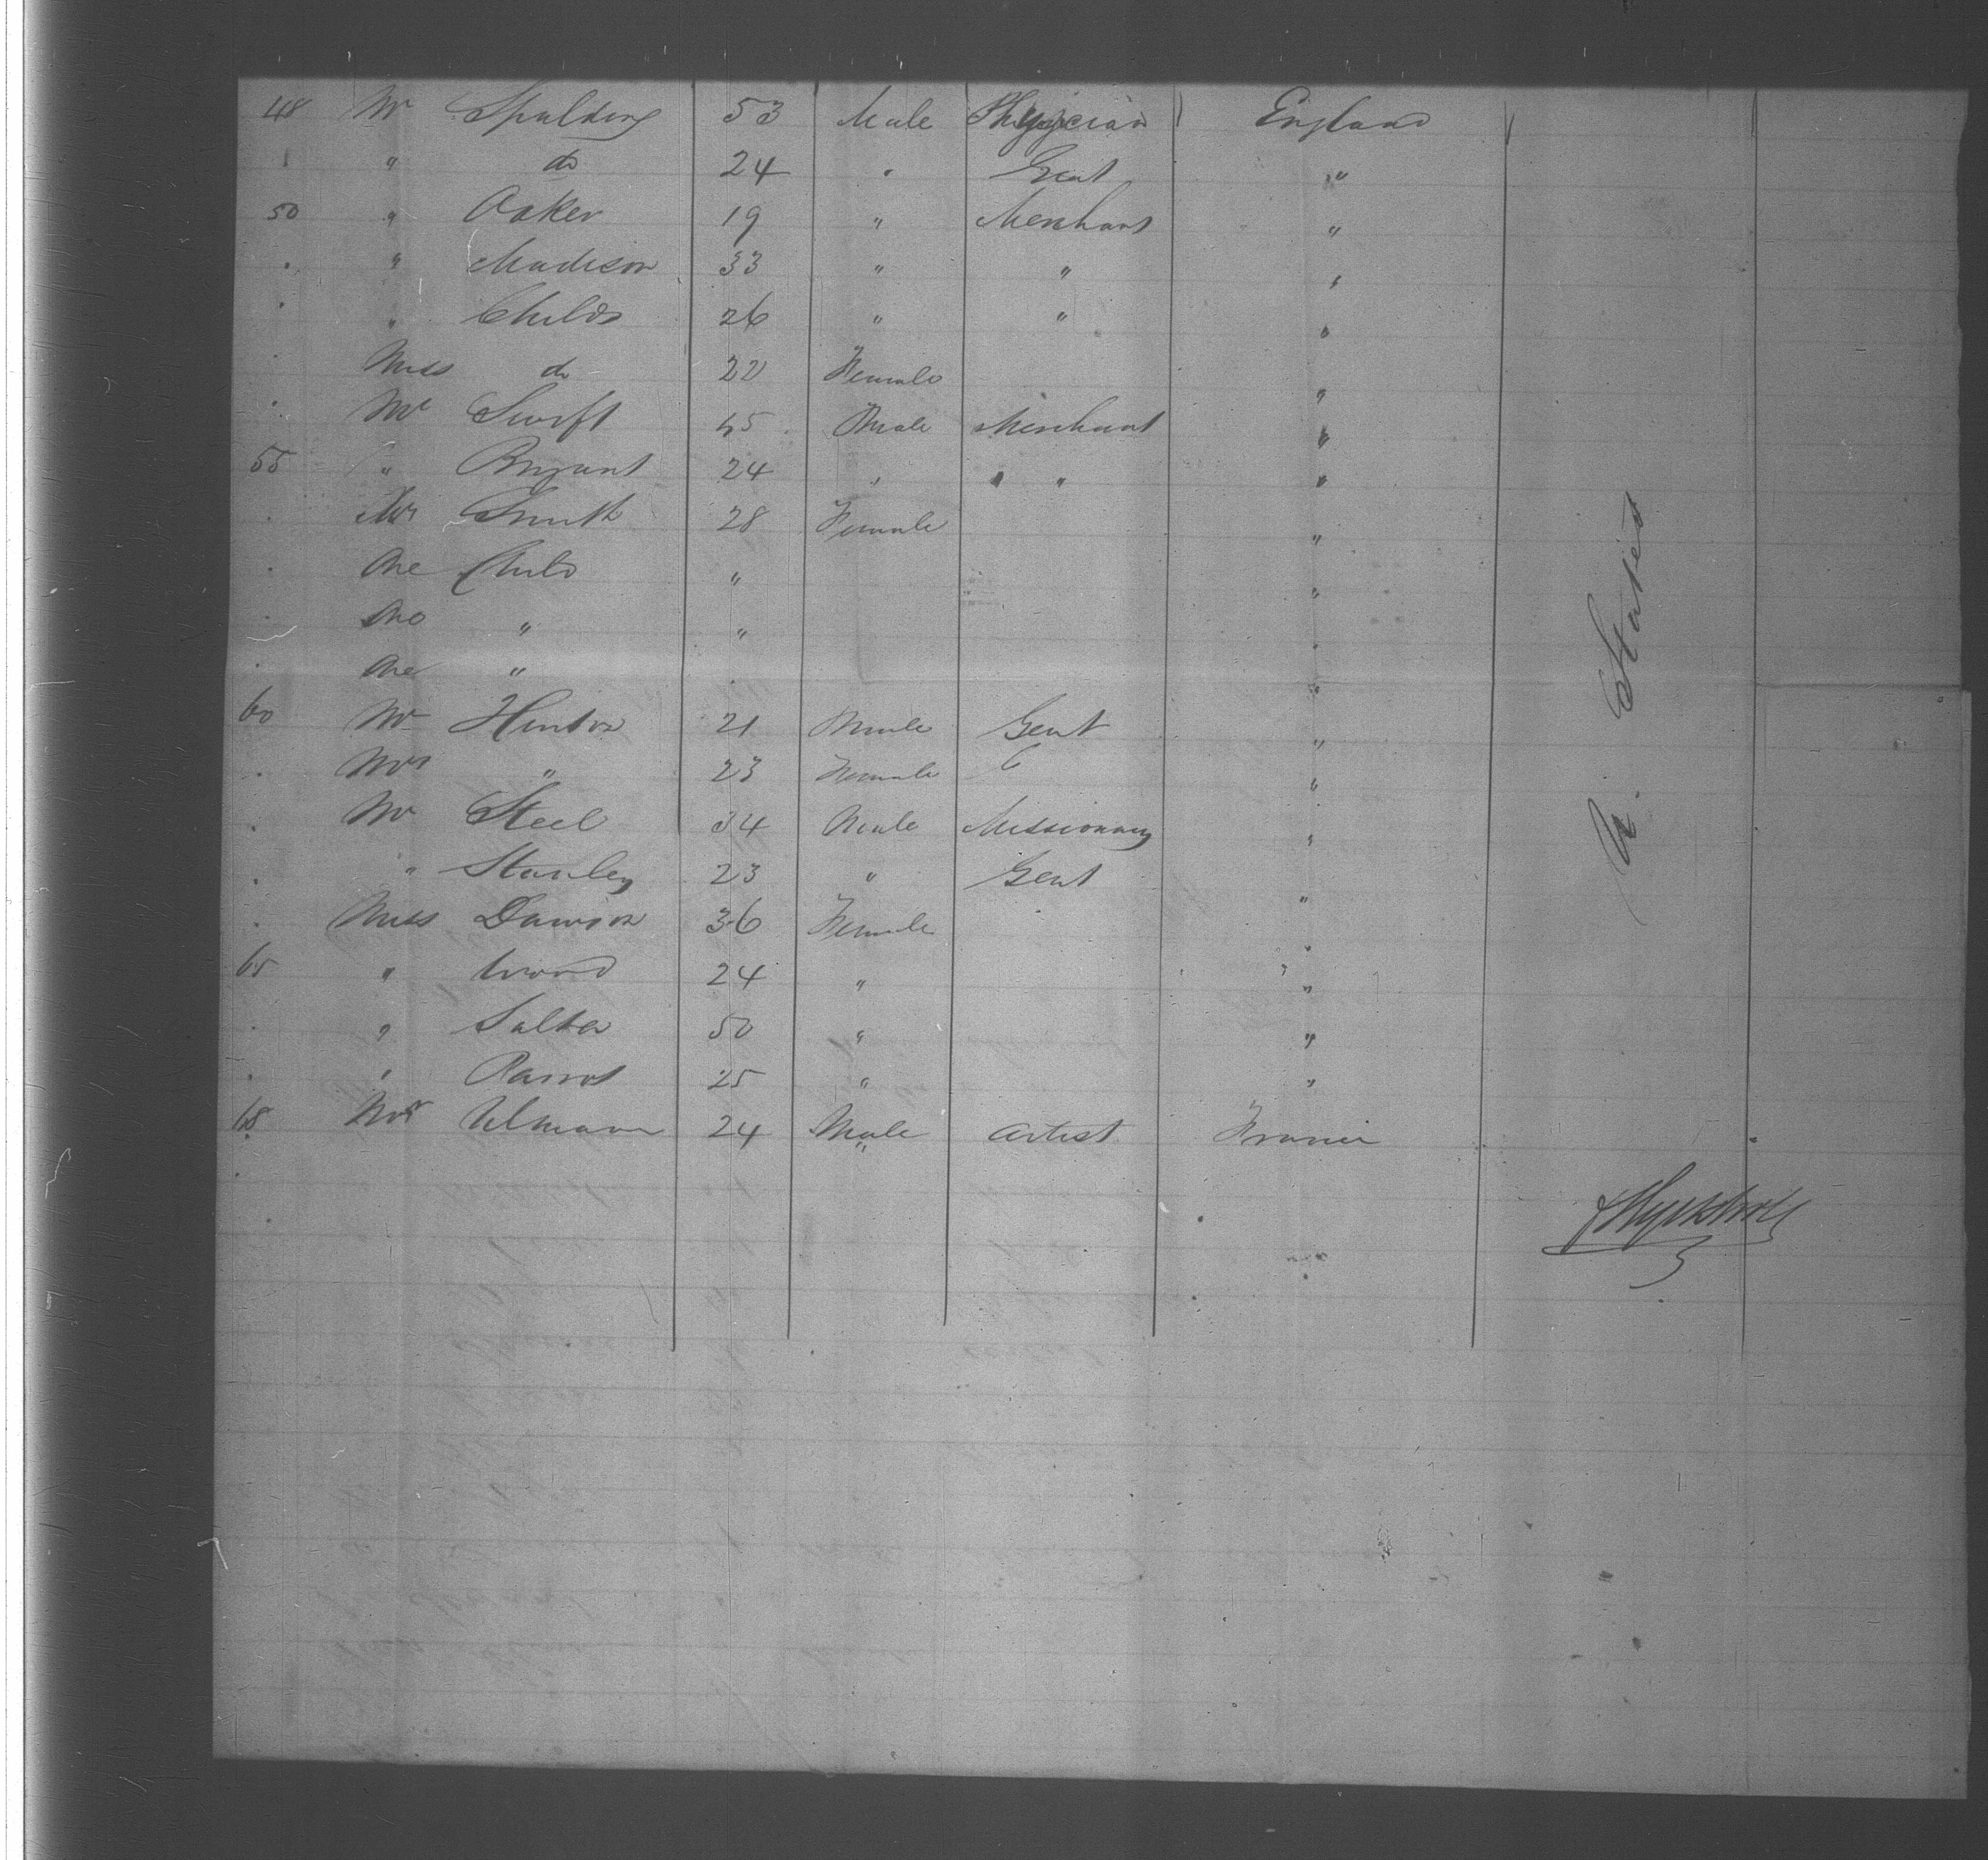 48 Mr Spalding 53 Male Physician England
" do 24 " Gent "
50 " Oaker 19 " Merchant "
" Madison 33 " " "
" Childs 26 " " "
Miss do 22 Female "
Mr Swift 45 Male Merchant "
55 " Bryant 24 " " "
Mrs Smith 28 Female "
One Child " "
One " " "
One " "
60 Mr Hinton 21 Male Gent "
Mrs " 23 Female "
Mr Steel 34 Male Missionary "
" Stanley 23 " Gent "
Miss Dawson 36 Female "
65 " Wood 24 " "
" Salter 50 " "
" Parrot 25 " "
68 Mr Ulmann 24 Male Artist France
U. States